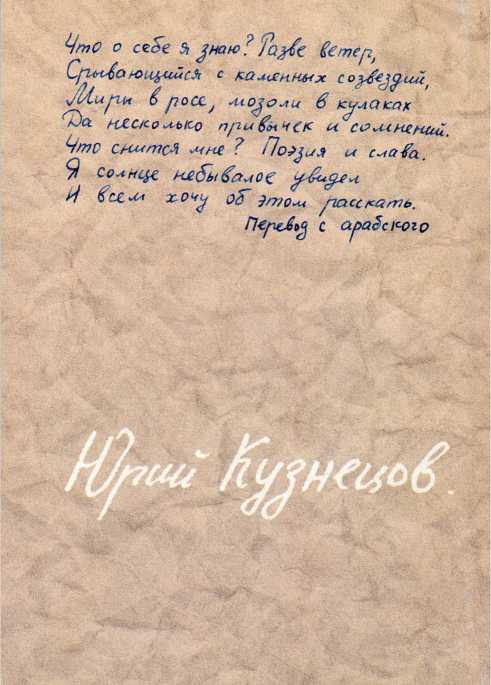 Что о себе я знаю? Разве ветер,
Срывающийся с каменных созвездий,
Миры в росе, мозоли в кулаках
Да несколько привычек и сомнений.
Что снится мне? Поэзия и слава.
Я солнце небывалое увидел
И всем хочу об этом расскать.
Перевод с арабского
Юрий Кузнецов.